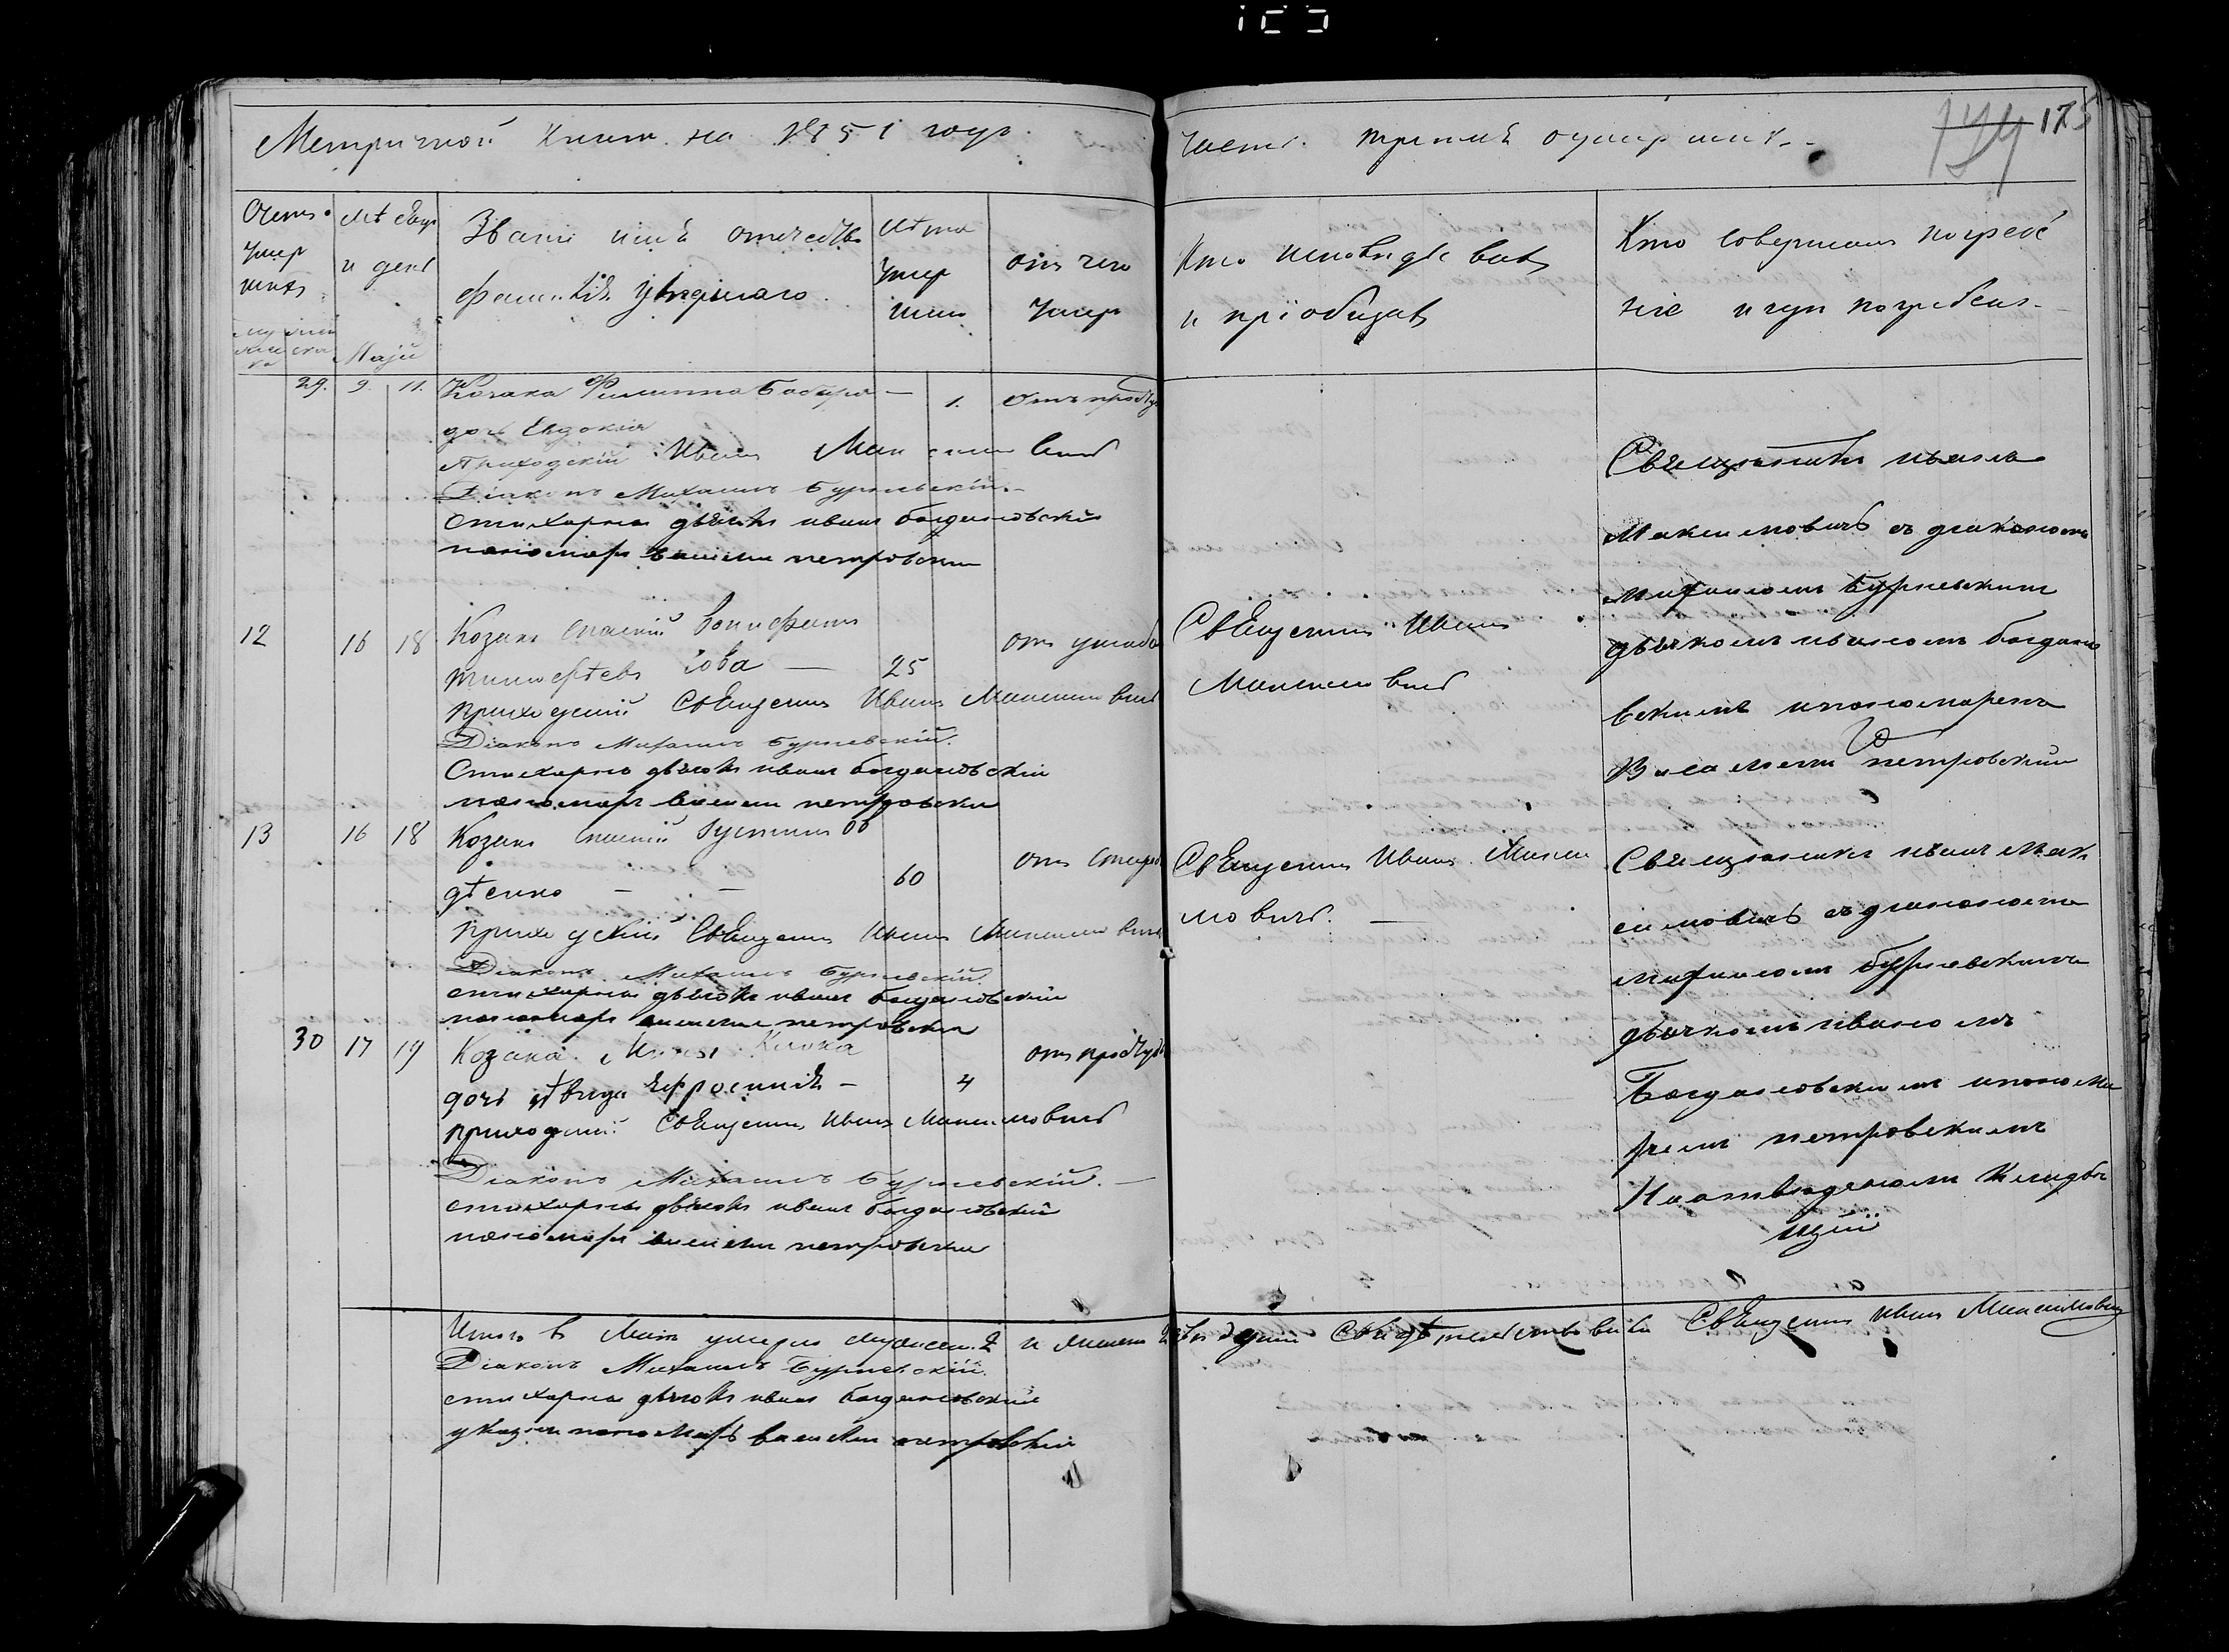 Метричной книги на 1851 годъ.
части третей о умершихъ.
174 175
Счетъ умер шихъ
Мѣсяцъ и день
Званіе имя отечество
фамилія умершаго
лѣта умер шихъ
отъ чего умеръ
Кто исповѣдывалъ
и пріобщалъ
Кто совершалъ погребе
ніе и гдѣ погребенъ
Маій
29. 9. 11. Козака Филиппа — 1. Отъ простуд
дочь Евдокія
Приходскій Иванъ Максимовичъ
Діаконъ Михаилъ Бурлевскій
Стихарный дьячокъ иванъ богдановскій
пономарь василий петровскій
Священникъ иванъ
Максимовичъ съ діакономъ
михаиломъ Бурлевскимъ
дьячкомъ иваномъ богдано
вскимъ и пономаремъ
Василиемъ петровскимъ
12 16 18 Козакъ Вонифатъ отъ
25
приходскій Священникъ Иванъ Максимовичъ
Діаконъ Михаилъ Бурлевскій.
Стихарный дьячокъ иванъ богдановскій
пономарь василий петровскій
Священникъ Иванъ
Максимовичъ
13 16 18 Козакъ отъ старос
60
приходскій Священникъ Иванъ Максимовичъ
Діаконъ Михаилъ Бурлевскій
стихарный дьячокъ иванъ богдановскій
пономарь василий петровскій
Священникъ Иванъ Макси
мовичъ. —
Священникъ иванъ Мак
симовичъ съ діакономъ
михаиломъ бурлевскимъ
дьячкомъ иваномъ
Богдановскимъ и понома
ремъ петровскимъ
На отведенномъ кладби
щѣ
30 17 19 Козака отъ простуд
дочь дѣвица Ефросинія — 4
приходскій Священникъ Иванъ Максимовичъ
Діаконъ Михаилъ Бурлевскій. —
стихарный дьячокъ иванъ богдановскій
пономарь василий петровскій
Итого в Маіи умерло мужеск. 2 и женск 2 душъ Свидѣтельствовалъ Священникъ Иванъ Максимовичъ
Діаконъ Михаилъ Бурлевскій.
стихарный дьячокъ иванъ богдановскій
указный пономарь василий петровскій